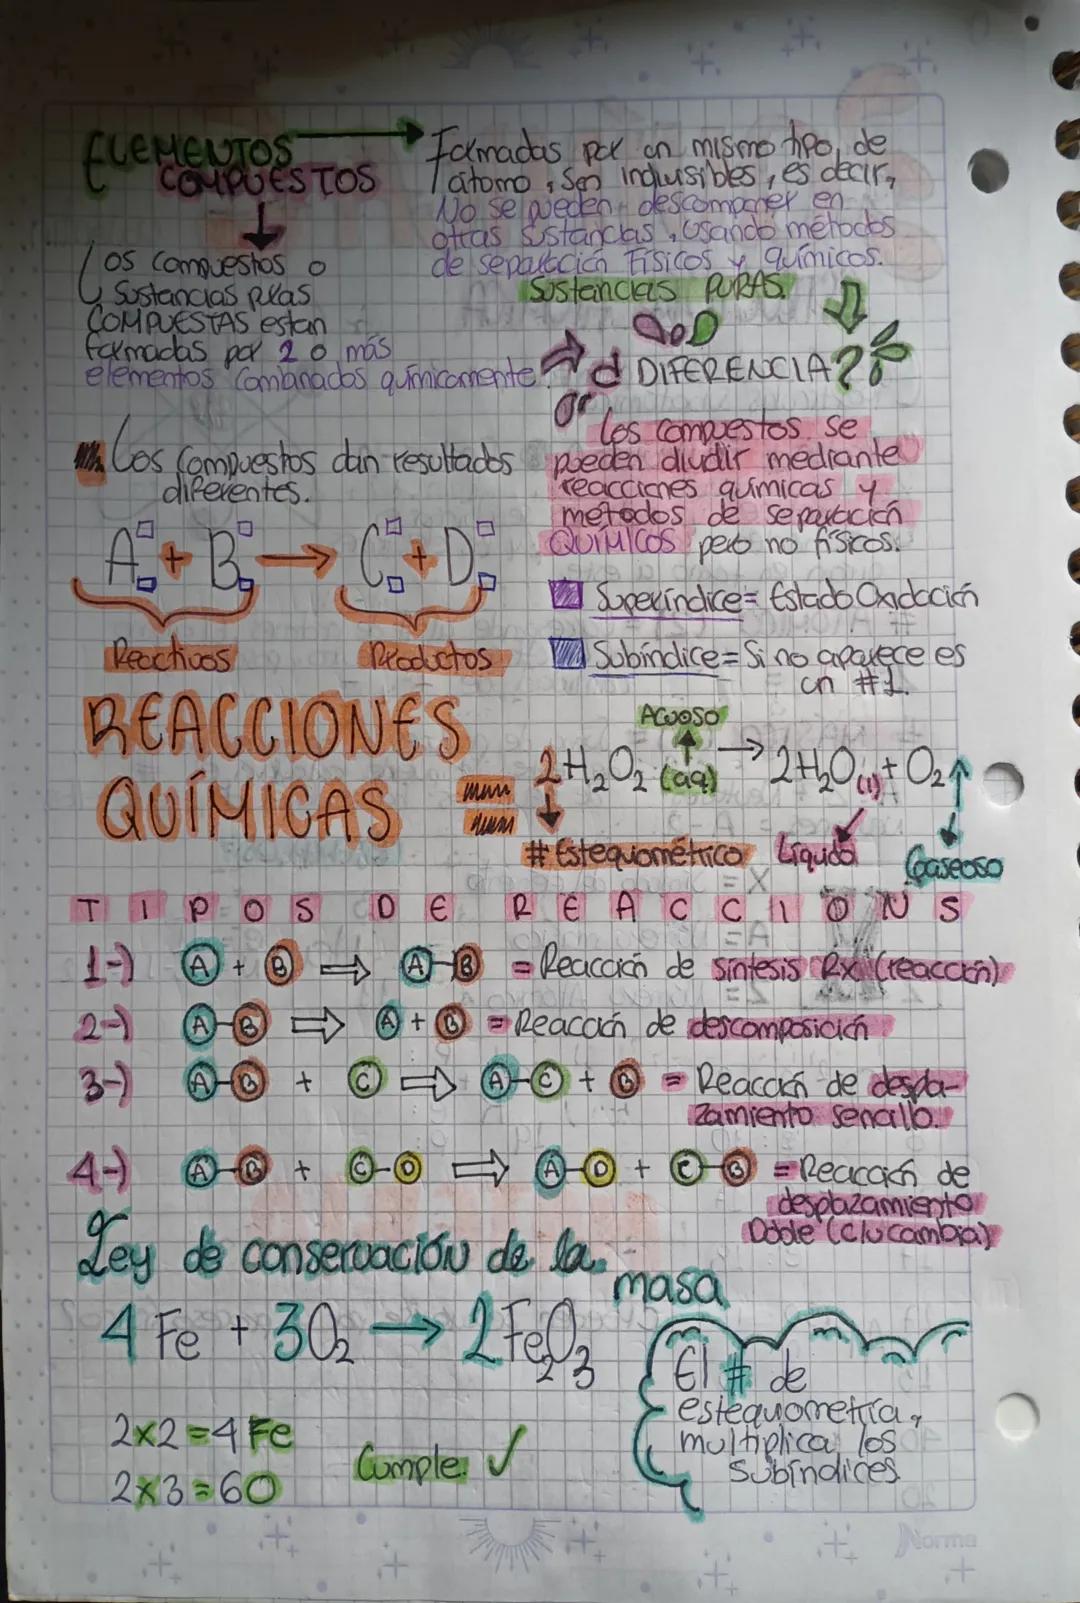 ELEMENTOS
COMPUESTOS
Formadas por un mismo tipo de
átomo, son indivisibles, es decir,
No se pueden descomponer en
otras sustancias, usando métodos
de separación Físicos y químicos.
Sustancias PURAS.
Los compuestos o
Sustancias puras
COMPUESTAS estan
formadas por 2 o más
elementos combinados químicamente.
d DIFERENCIA?
Los compuestos se
pueden dividir mediante
reacciones químicas y
métodos de separación
QUÍMICOS pero no físicos.
Los compuestos dan resultados
diferentes.
A + B → C + D
Reactivos
Productos
Superíndice = Estado Oxidación
Subíndice = Si no aparece es
un #1.
REACCIONES
QUÍMICAS
Acuoso
2H₂O₂ (aq) → 2H₂O(l) + O₂↑
# Estequiométrico
Líquido
Gaseoso
TIPOS DE REACCIONS
1-) A + B ⇒ A-B = Reacción de síntesis Rx (reacción)
2-) A-B ⇒ A + B = Reacción de descomposición
3-) A-B + C ⇒ A-C + B = Reacción de despla-
zamiento sencillo.
4-) A-B + C-D ⇒ A-D + C-B = Reacción de
desplazamiento
Doble
Ley de conservación de la
masa
4 Fe + 3O₂ → 2Fe₂O₃
2x2=4 Fe
2x3=6O
Cumple. ✓
El # de
estequometría,
multiplica los
Subíndices
Norma